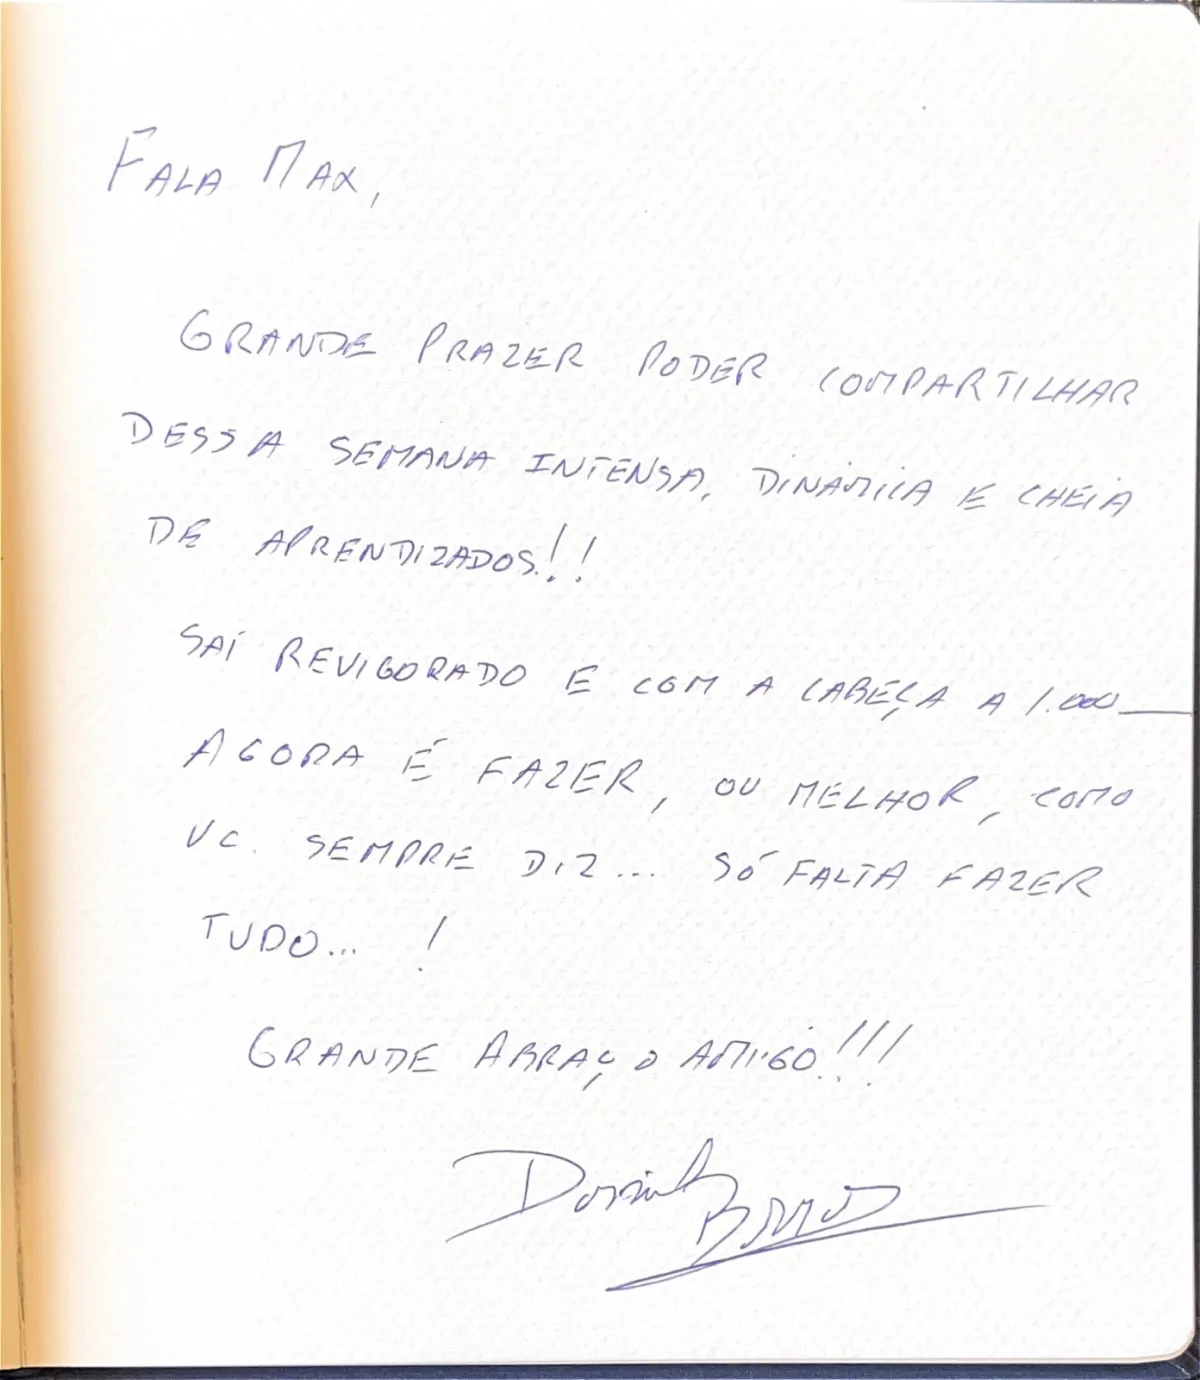 FALA MAX,
GRANDE PRAZER PODER COMPARTILHAR
DESSA SEMANA INTENSA, DINÂMICA E CHEIA
DE APRENDIZADOS!!
SAÍ REVIGORADO E COM A CABEÇA A 1.000
AGORA É FAZER, OU MELHOR, COMO
VC. SEMPRE DIZ... SÓ FALTA FAZER
TUDO... !
GRANDE ABRAÇO AMIGO!!!